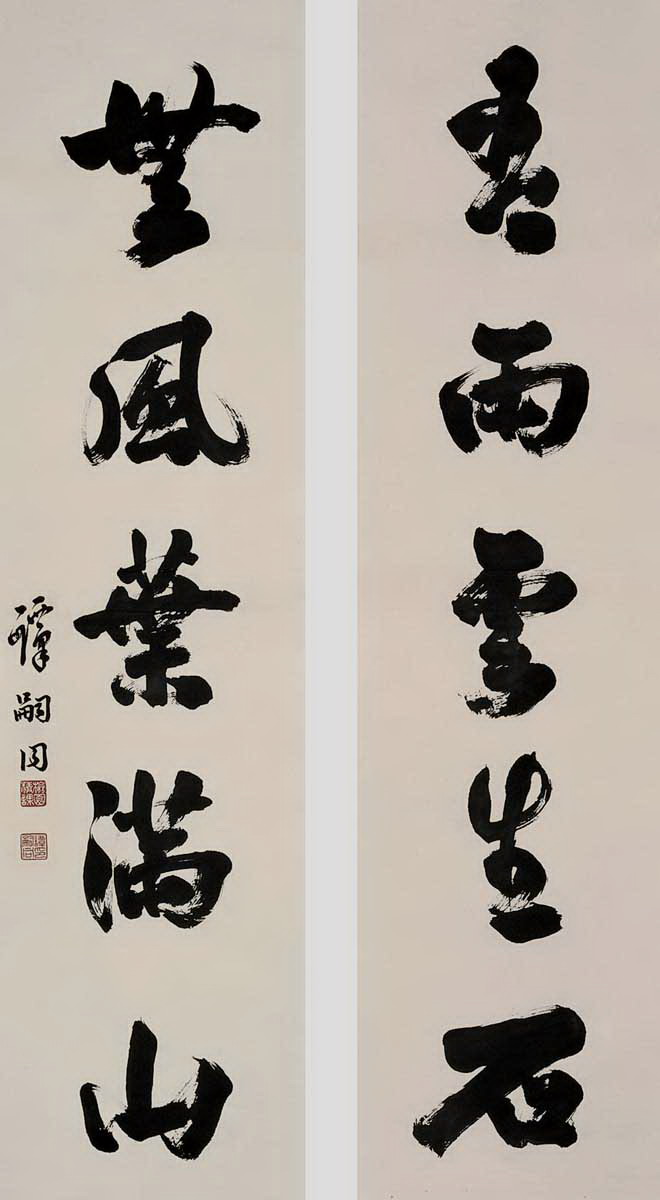 有雨雲生石
無風葉滿山
譚嗣同